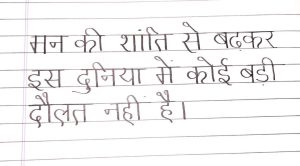 मन की शांति से बढकर
इस दुनिया में कोई बड़ी
दौलत नहीं है।